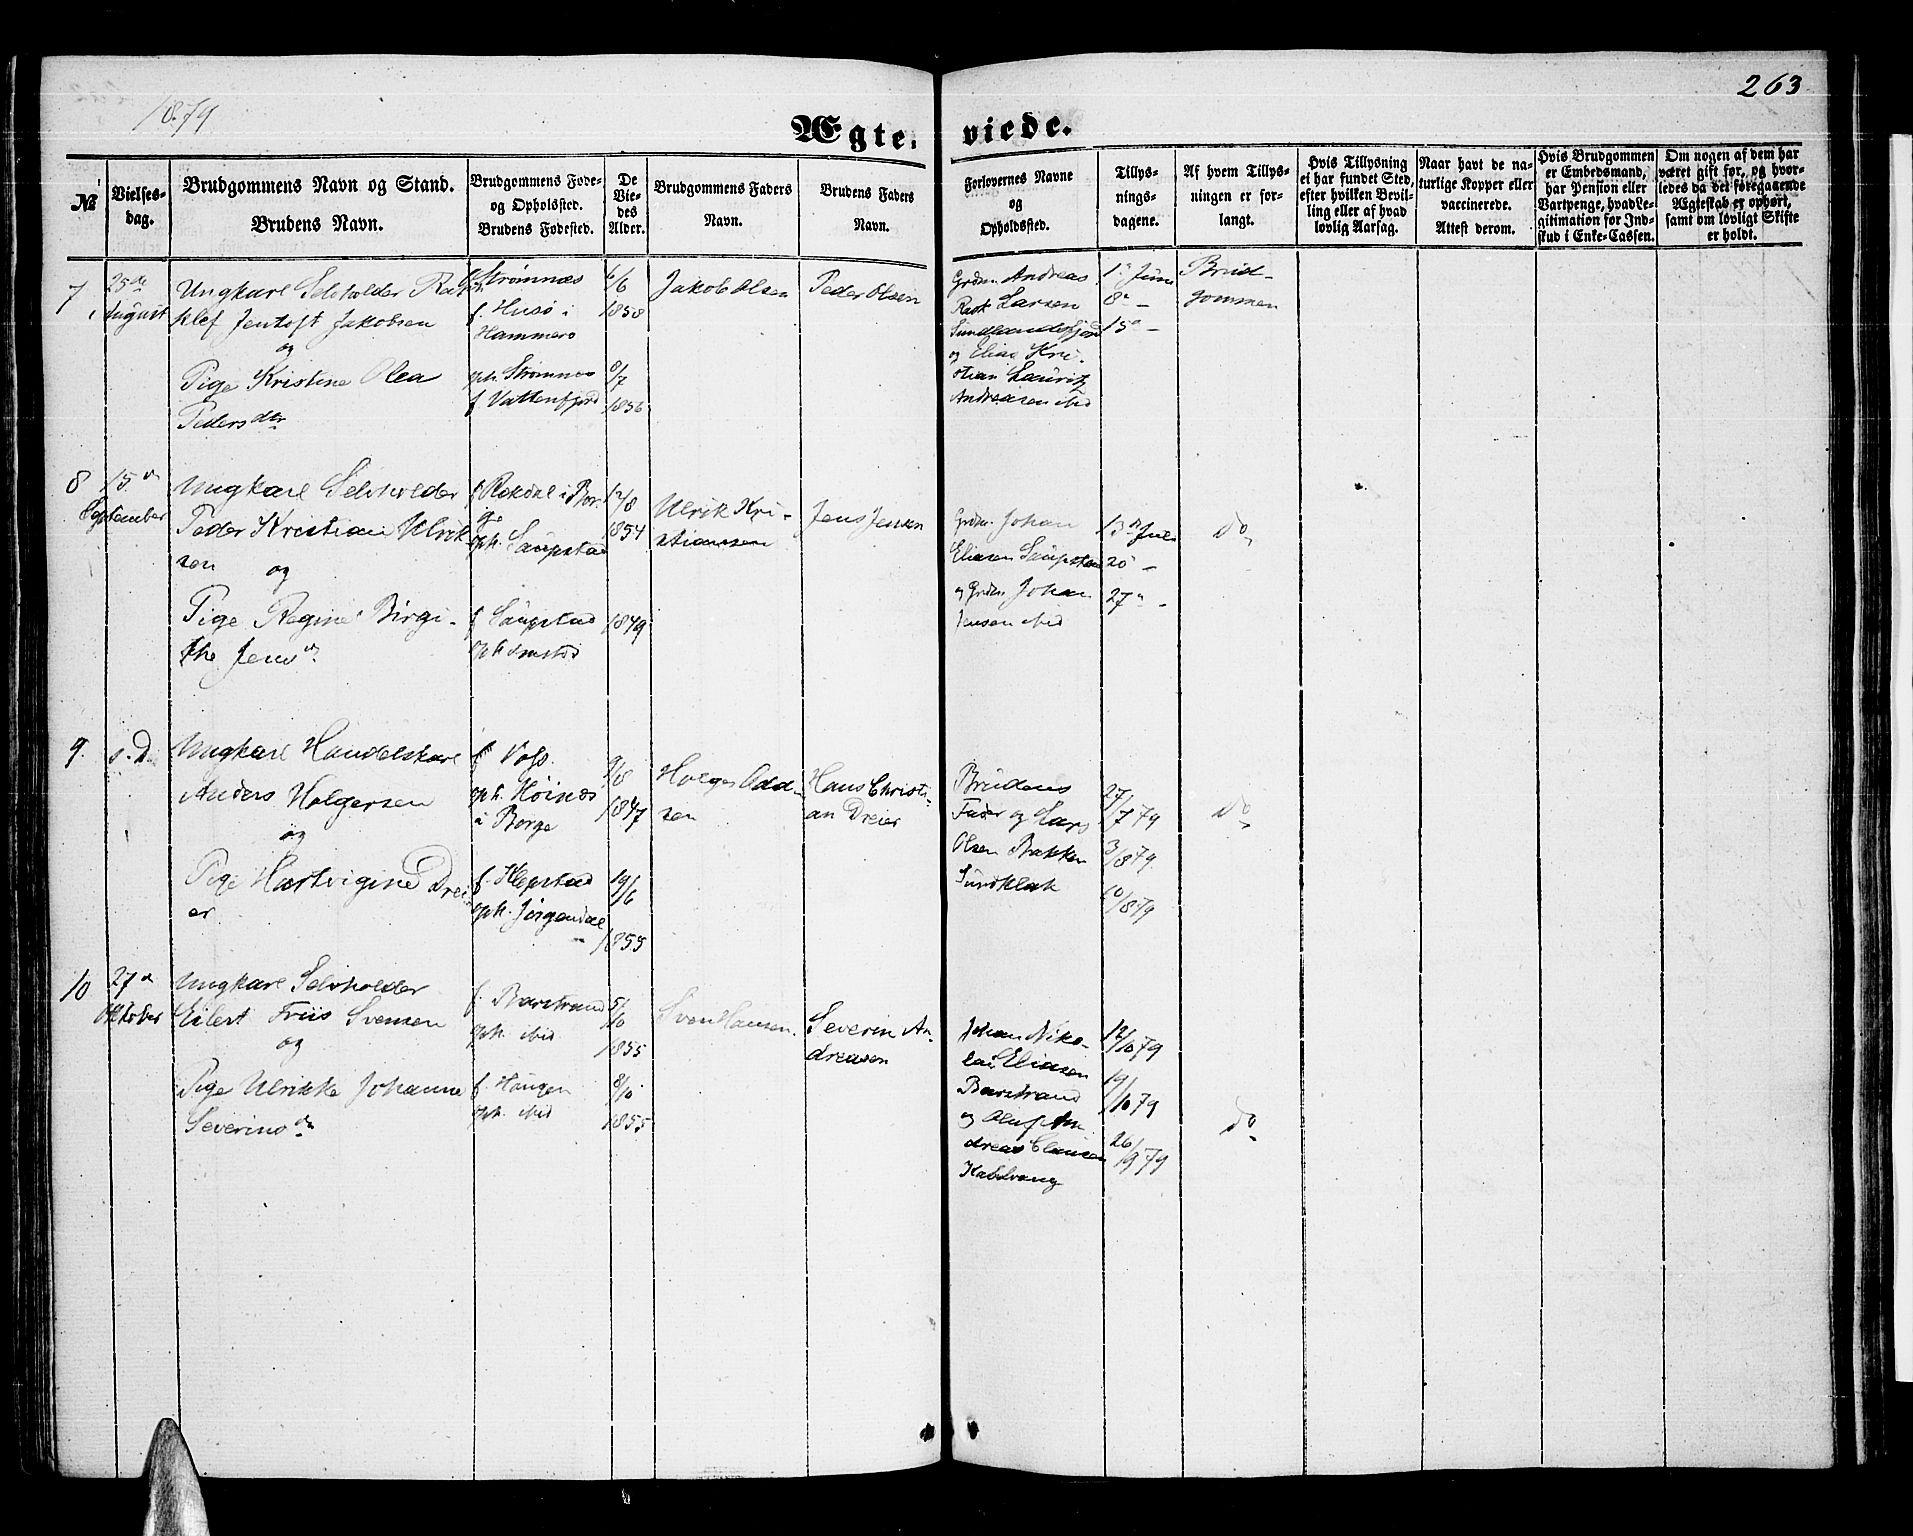 263
1879
Ægte-
viede.
№
Vielses-
dag.
Brudgommens Navn og Stand.
Brudens Navn.
Brudgommens Føde-
og Opholdsted.
Brudens Fødested.
De
Vie-
des
Alder.
Brudgommens Faders
Navn.
Brudens Faders
Navn.
Forlovernes Navne
og
Opholdssted.
Tillys-
nings-
dagene.
Af hvem Tillys-
ningen er for-
langt.
Hvis Tillysning
ei har fundet Sted,
efter hvilken Bevil-
ling eller af hvad
lovlig Aarsag.
Naar havt de na-
turlige Kopper eller
vaccinerede.
Attest derom.
Hvis Brudgommen
er Embedsmand,
har Pension eller
Vartpenge, hvad Le-
gitimation for Ind-
skud i Enke-Cassen.
Om nogen af dem har
været gift før, og hvor-
ledes da det foregaaende
Ægteskab er ophørt,
samt om lovligt Skifte
er holdt.
7
25de
August
Ungkarl Selvholder
klef Jentoft Jakobsen
og
Pige Kristine Olea
Pedersdtr
Strømnæs
f. Husø i
Hammerø
oph. Strømnes
f Vattenfjord
6/6
1858
8/7
1856
Jakob Olsen
Peder Olsen
Grdm. Andreas
Rask Larsen
Sundlandsfjord
og Elias Kri-
stian Lauritz
Andreasen ibid
1ste Juni
8de -
15de -
Brud-
gommen
8
15de
September
Ungkarl Selvholder
Peder Kristian Ulrik
sen og
Pige Regine Birgi-
the Jensdtr
f Rekdal i Bor-
ge
oph. Saupstad
f Saupstad
12/8
1854
1849
Ulrik Kri-
stiansen
Jens Jensen
Grdm. Johan
Eliasen Saupstad
og Grdm. Johan
Jensen ibid
13de Juli
20 -
27de -
do
9.
s. D.
Ungkarl Handelskarl
Anders Holgersen
og
Pige Hartvigine Drei-
er.
f Voss.
oph. Höinæs
i Borge
f. Hepstad
oph. Jörgendal
9/8
1847
19/6
1855
Holger Odd-
sen
Hans Christi-
an Dreier
Brudens
Fader og Lars
Olsen Bakken
Sundklak
27/7 79
3/8 79.
10/8 79
do
10
27de
Oktober
Ungkarl Selvholder
Eilert Friis Svensen
og
Pige Ulrikke Johanne
Severinsdtr
f. Barstrand
oph. ibid
f. Haugen
oph. ibid
5/10
1855
8/10
1855
Sven Hansen.
Severin An
dreasen
Johan Niko-
lai Eliasen
Barstrand
og Oluf An
dreas Clausen
Kabelvaag
12/10 79
19/10 79
26/9 79
do